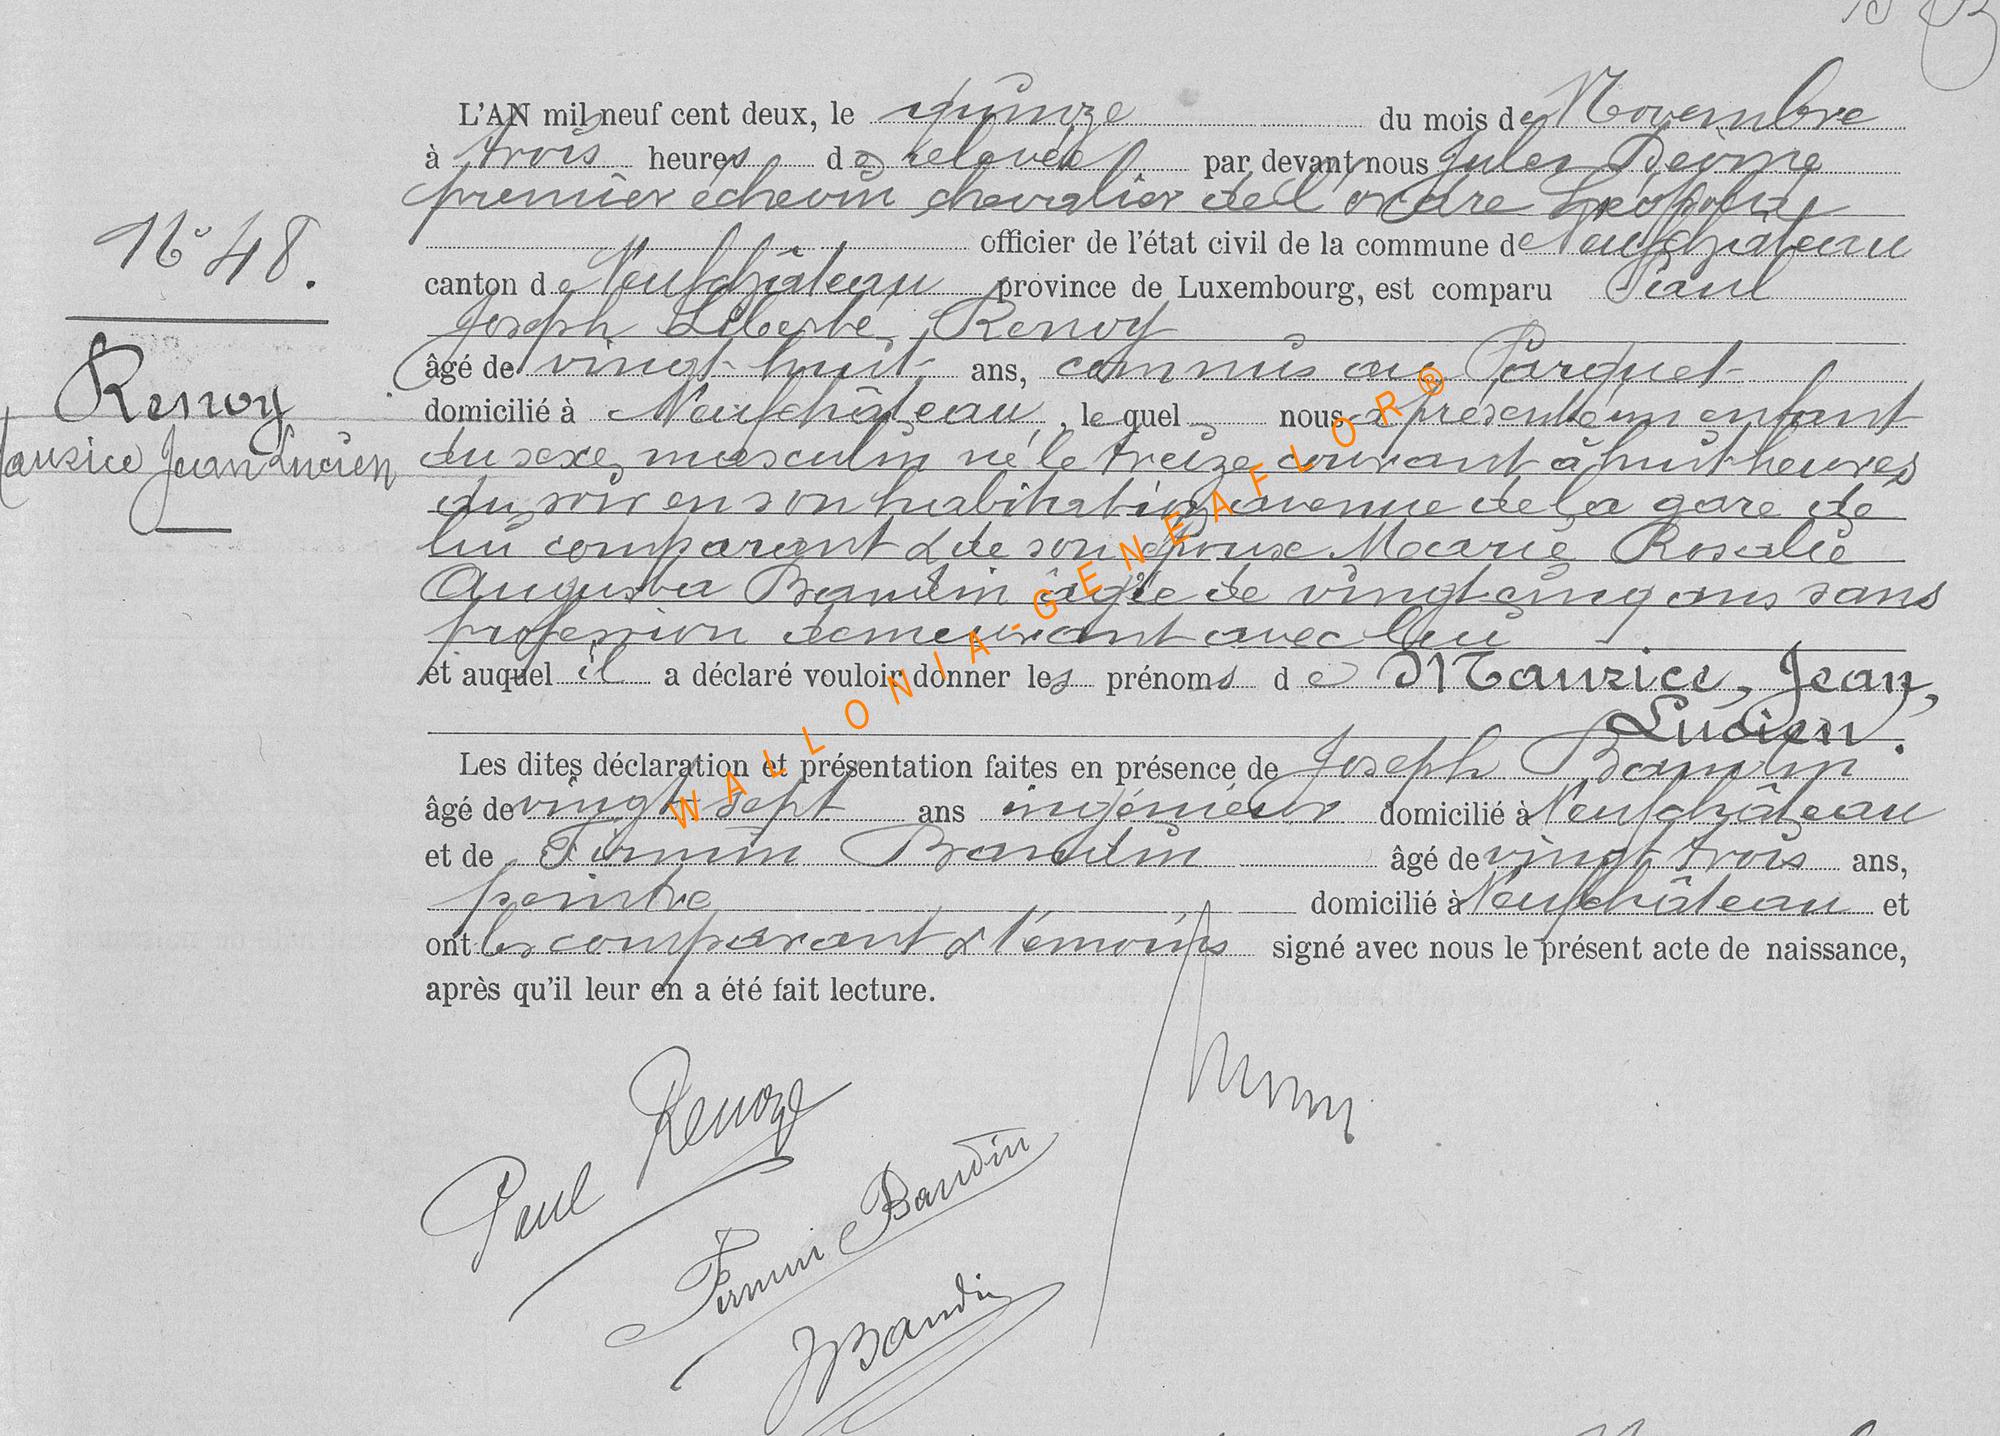 N° 48.
Renoy
Maurice Jean Lucien
L'AN mil neuf cent deux, le quinze du mois de Novembre
à trois heures de relevée par devant nous Jules
premier échevin chevalier de l'ordre Léopold
officier de l'état civil de la commune de Neufchâteau
canton de Neufchâteau province de Luxembourg, est comparu Paul
Joseph Liberté Renoy
âgé de vingt-huit ans, commis au Parquet
domicilié à Neufchâteau, lequel nous a présenté un enfant
du sexe masculin né le treize courant à huit heures
du soir en son habitation avenue de la gare de
lui comparant & de son épouse Marie Rosalie
Augusta Baudin âgée de vingt-cinq ans sans
profession demeurant avec lui
et auquel il a déclaré vouloir donner les prénoms de Maurice, Jean,
Lucien.
Les dites déclaration et présentation faites en présence de Joseph Baudin
âgé de vingt sept ans ingénieur domicilié à Neufchâteau
et de Firmin Baudin âgé de vingt trois ans,
peintre domicilié à Neufchâteau et
ont les comparant & témoins signé avec nous le présent acte de naissance,
après qu'il leur en a été fait lecture.
Paul Renoy
Firmin Baudin
J Baudin
WALLONIA-GENEAFLOR®